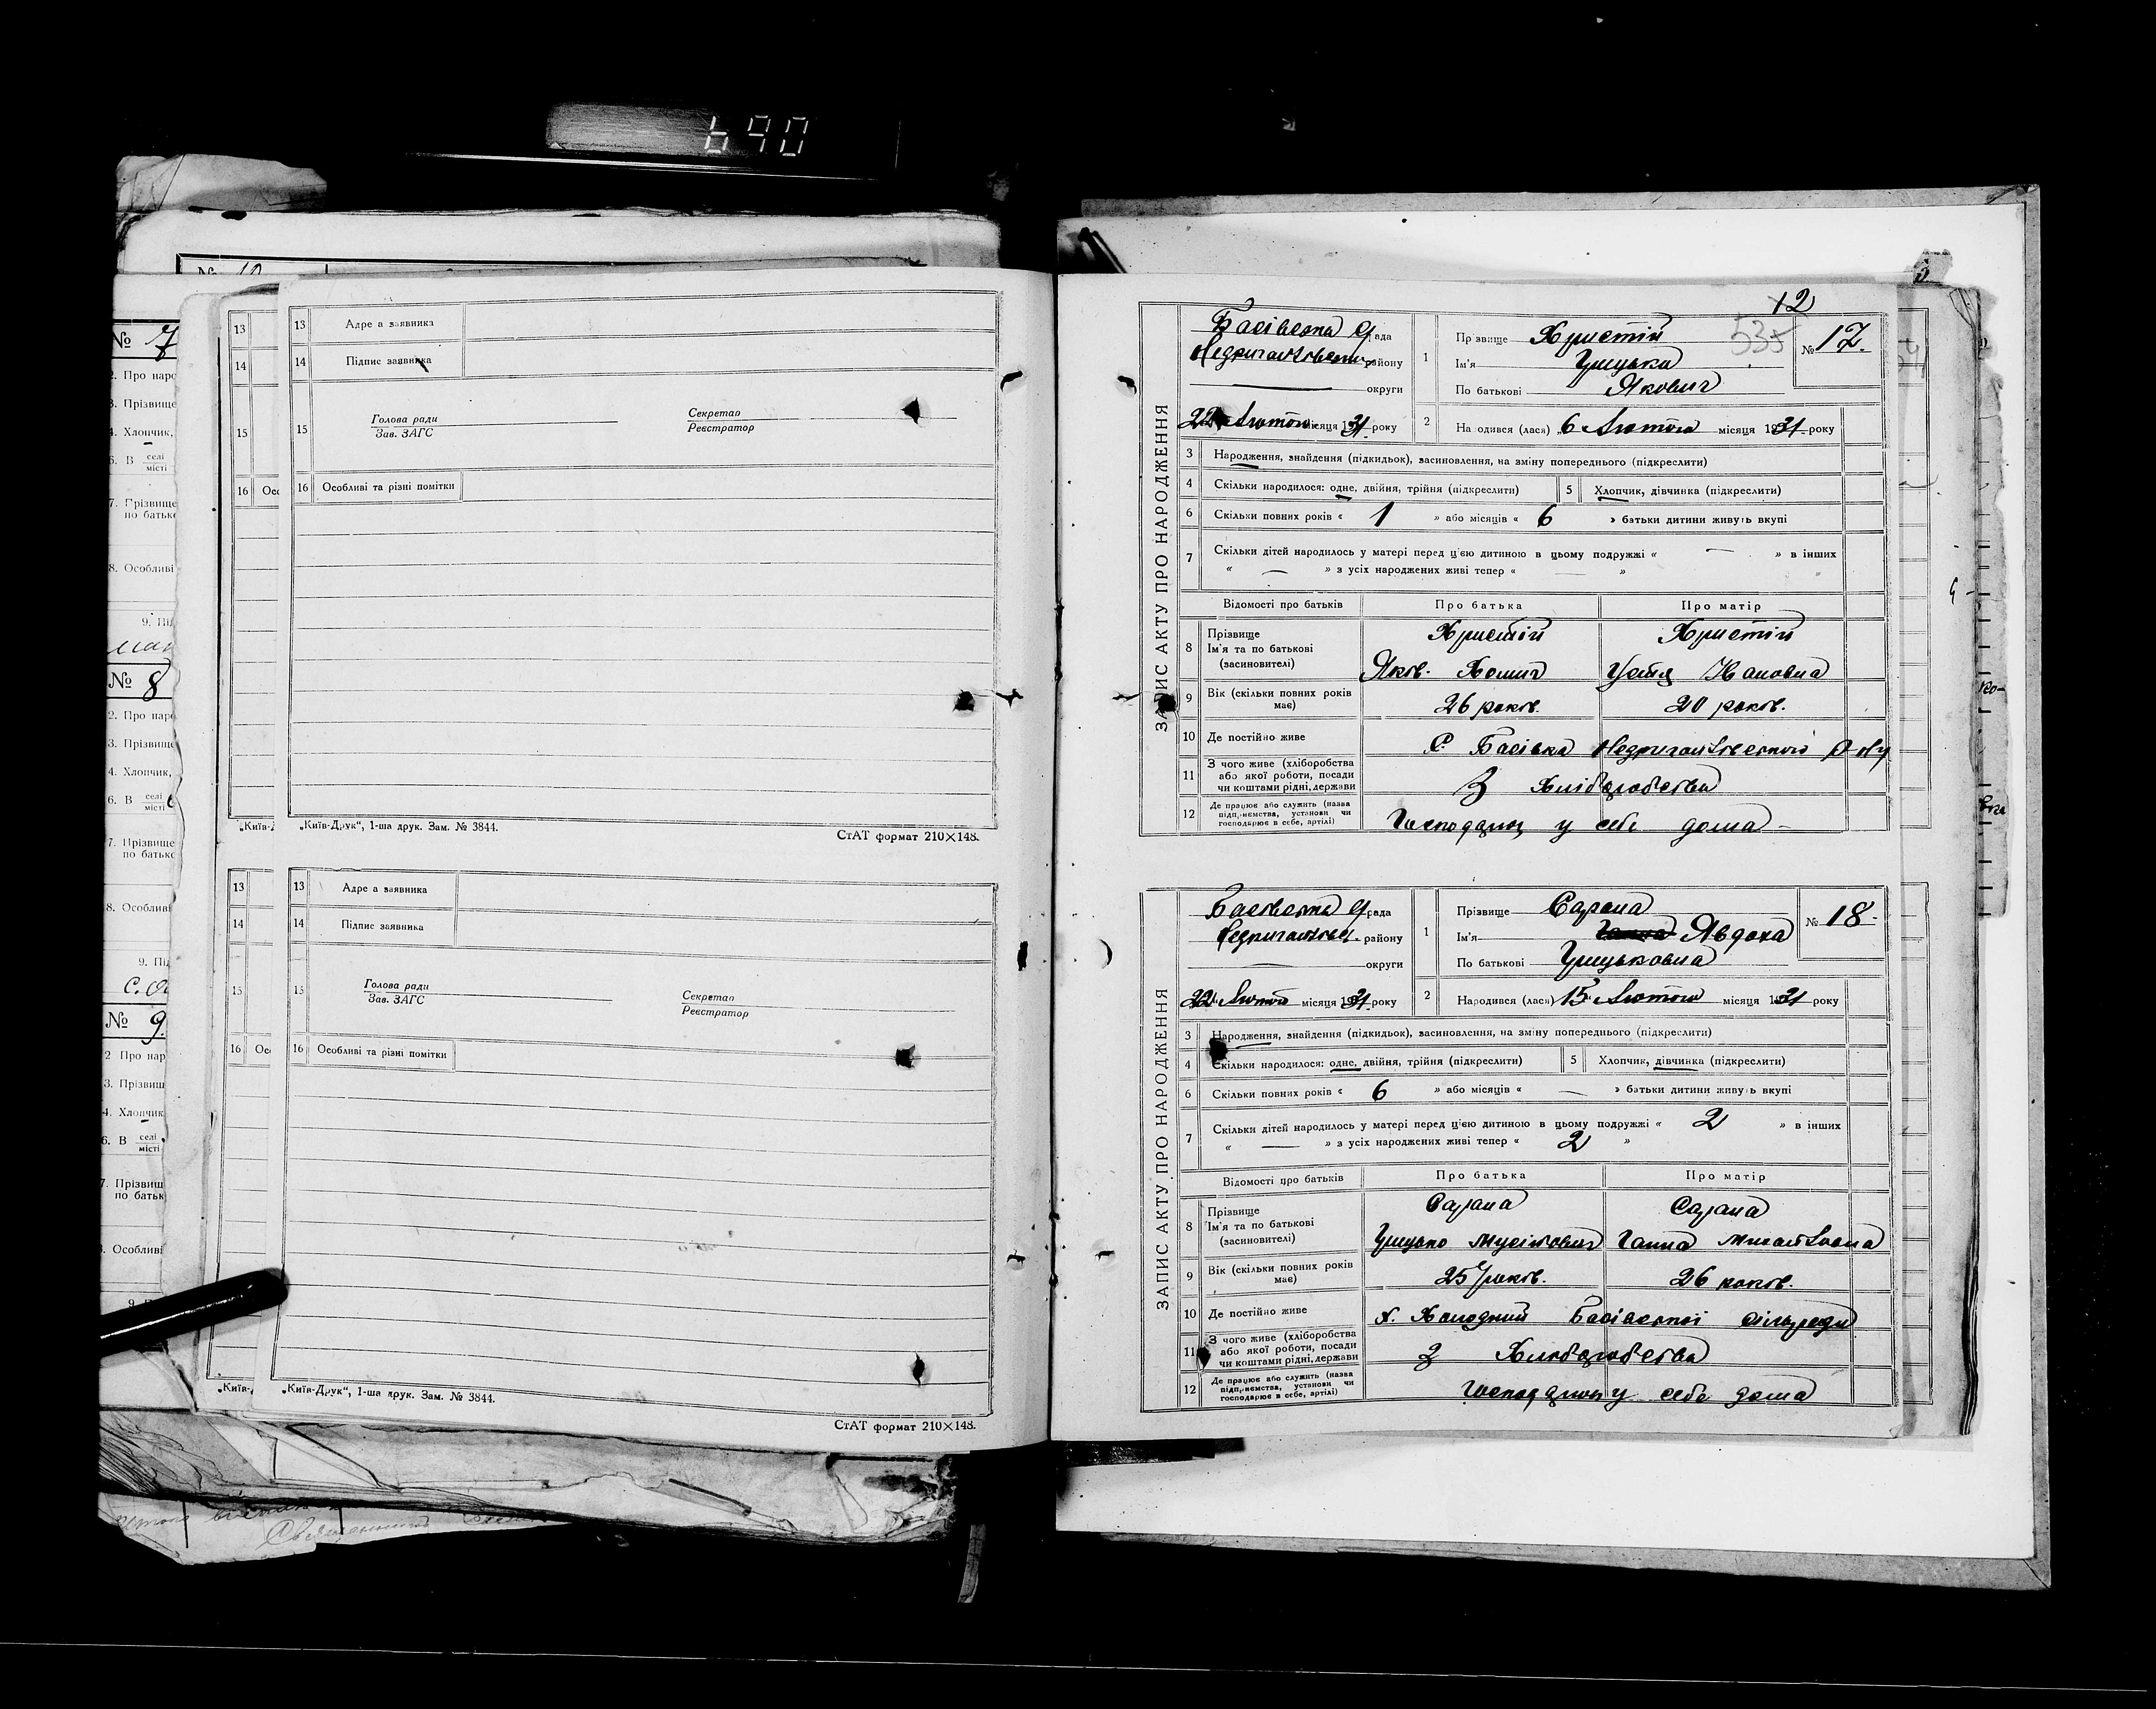 690
№ 7
2. Про наро
3. Прізвище
4. Хлопчик,
селі
місті
7. Прізвище
по батько
8. Особливі
№ 8
2. Про наро
3. Прізвище
4. Хлопчик,
6. В селі
місті
7. Прізвище
по батько
8. Особливі
№ 9.
2 Про нар
3. Прізвищ
4. Хлопчик
6. В селі
місті
7. Прізвищ
по батьк
Особливі
13 13 Адре а заявника
14 14 Підпис заявника
15 15 Голова ради
Зав. ЗАГС
Секретар
Реєстратор
16 Осо 16 Особливі та різні помітки
„Київ-Д „Київ-Друк“, 1-ша друк. Зам. № 3844.
СтАТ формат 210×148.
13 13 Адре а заявника
14 14 Підпис заявника
15 15 Голова ради
Зав. ЗАГС
Секретар
Реєстратор
16 Осо 16 Особливі та різні помітки
„Київ-Д „Київ-Друк“, 1-ша друк. Зам. № 3844.
СтАТ формат 210×148.
12
535
ЗАПИС АКТУ ПРО НАРОДЖЕННЯ
Басівська С/рада
району
округи
22 Лютого місяця 1931 року
1 Прізвище Христій
Ім'я Грицько
По батькові Якович
№ 17.
2 Народився (лася) 6 Лютого місяця 1931 року
3 Народження, знайдення (підкидьок), засиновлення, на зміну попереднього (підкреслити)
4 Скільки народилося: одне, двійня, трійня (підкреслити) 5 Хлопчик, дівчинка (підкреслити)
6 Скільки повних років « 1 » або місяців « 6 » батьки дитини живуть вкупі
7 Скільки дітей народилось у матері перед цією дитиною в цьому подружжі « — » в інших
« — » з усіх народжених живі тепер « — »
Відомості про батьків Про батька Про матір
8 Прізвище
Ім'я та по батькові
(засиновителі)
Христій Христій
Яків
9 Вік (скільки повних років має) 26 років. 20 років.
10 Де постійно живе С. Басівка Недригайлівського р-ну
11 З чого живе (хліборобства
або якої роботи, посади
чи коштами рідні, держави
З Хліборобства
12 Де працює або служить (назва
підприємства, установи чи
господарює в себе, артілі)
у себе дома
ЗАПИС АКТУ ПРО НАРОДЖЕННЯ
Басівська С/рада
району
округи
22 Лютого місяця 1931 року
1 Прізвище Сарана
Ім'я Ганна Явдоха
По батькові Грицьковна
№ 18
2 Народився (лася) 15 Лютого місяця 1931 року
3 Народження, знайдення (підкидьок), засиновлення, на зміну попереднього (підкреслити)
4 Скільки народилося: одне, двійня, трійня (підкреслити) 5 Хлопчик, дівчинка (підкреслити)
6 Скільки повних років « 6 » або місяців « — » батьки дитини живуть вкупі
7 Скільки дітей народилось у матері перед цією дитиною в цьому подружжі « 2 » в інших
« — » з усіх народжених живі тепер « 2 »
Відомості про батьків Про батька Про матір
8 Прізвище
Ім'я та по батькові
(засиновителі)
Сарана Сарана
Грицько Мусійович Ганна Михайловна
9 Вік (скільки повних років має) 25 років. 26 років.
10 Де постійно живе х. Холодний Басівської сільради
11 З чого живе (хліборобства
або якої роботи, посади
чи коштами рідні, держави
З Хліборобства
12 Де працює або служить (назва
підприємства, установи чи
господарює в себе, артілі)
у себе дома